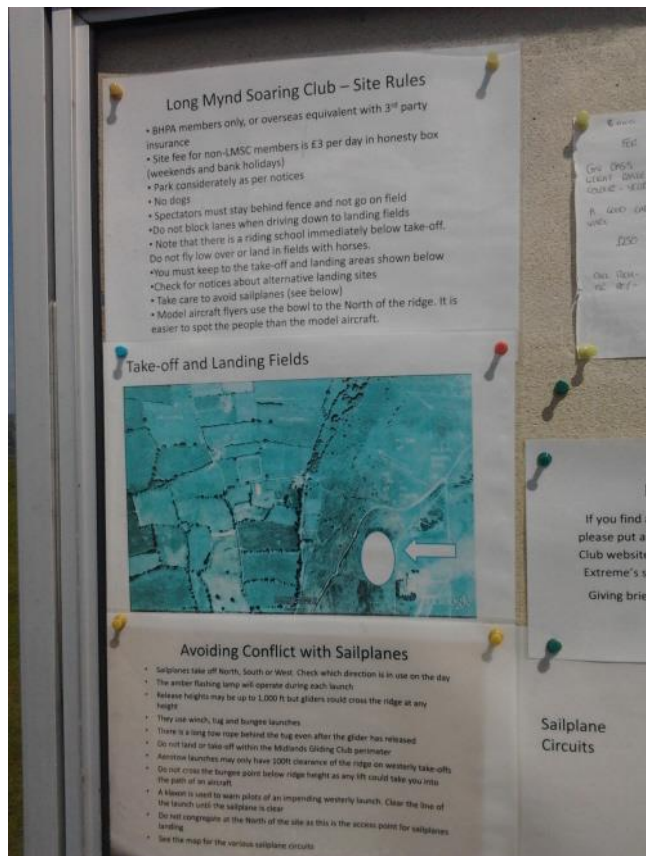 Long Mynd Soaring Club – Site Rules
• BHPA members only, or overseas equivalent with 3rd party
insurance
• Site fee for non-LMSC members is £3 per day in honesty box
(weekends and bank holidays)
• Park considerately as per notices
• No dogs
• Spectators must stay behind fence and not go on field
•Do not block lanes when driving down to landing fields
• Note that there is a riding school immediately below take-off.
Do not fly low over or land in fields with horses.
•You must keep to the take-off and landing areas shown below
•Check for notices about alternative landing sites
• Take care to avoid sailplanes (see below)
• Model aircraft flyers use the bowl to the North of the ridge. It is
easier to spot the people than the model aircraft.
Take-off and Landing Fields
Avoiding Conflict with Sailplanes
• Sailplanes take off North, South or West. Check which direction is in use on the day
• The amber flashing lamp will operate during each launch
• Release heights may be up to 1,000 ft but gliders could cross the ridge at any
height
• They use winch, tug and bungee launches
• There is a long tow rope behind the tug even after the glider has released
• Do not land or take-off within the Midlands Gliding Club perimeter
• Aerotow launches may only have 100ft clearance of the ridge on westerly take-offs
• Do not cross the bungee point below ridge height as any lift could take you into
the path of an aircraft.
• A klaxon is used to warn pilots of an impending westerly launch. Clear the line of
the launch until the sailplane is clear
• Do not congregate at the North of the site as this is the access point for sailplanes
landing
• See the map for the various sailplane circuits
£250
If you find
please put a
Club website
Extreme's s
Giving brie
Sailplane
Circuits